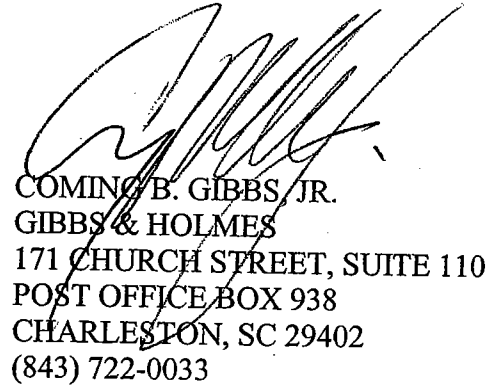 COMING B. GIBBS, JR.
GIBBS & HOLMES
171 CHURCH STREET, SUITE 110
POST OFFICE BOX 938
CHARLESTON, SC 29402
(843) 722-0033